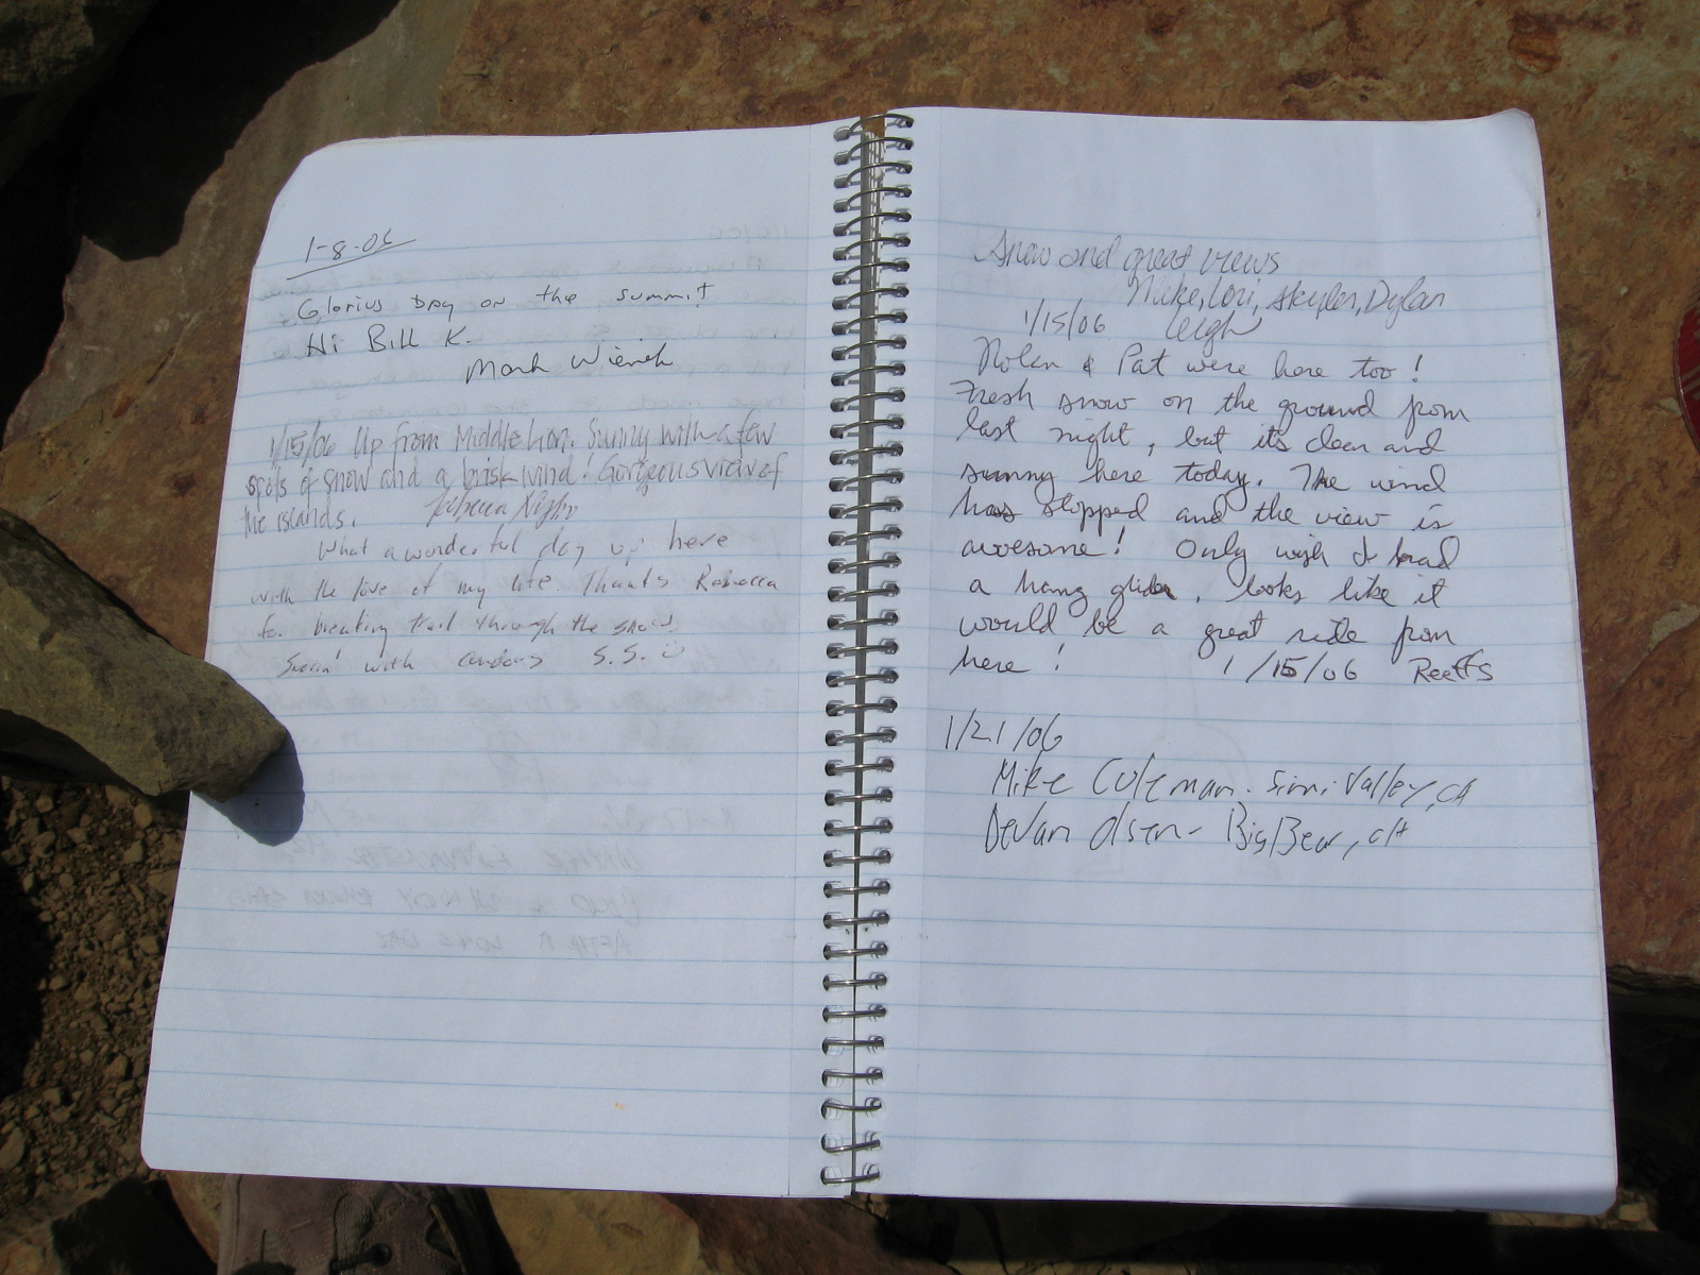 1-8-06
Glorius Day on the summit
Hi Bill K.
Mark
1/15/06 Up from Middle Lion. Sunny with a few
spots of snow and a brisk wind! Gorgeous view of
the islands. Rebecca
What a wonderful day up here
with the love of my life. Thanks Rebecca
for breaking trail through the snow!
with S.S.
Snow and great views
Mike, Lori, Skyler, Dylan
1/15/06 Leigh
Nolan & Pat were here too!
Fresh snow on the ground from
last night, but its clear and
sunny here today. The wind
has stopped and the view is
awesome! Only wish I had
a hang glider, looks like it
would be a great ride from
here! 1/15/06 Reeffs
1/21/06
Mike Coleman - Simi Valley, CA
Devan Olsen - Big Bear, CA